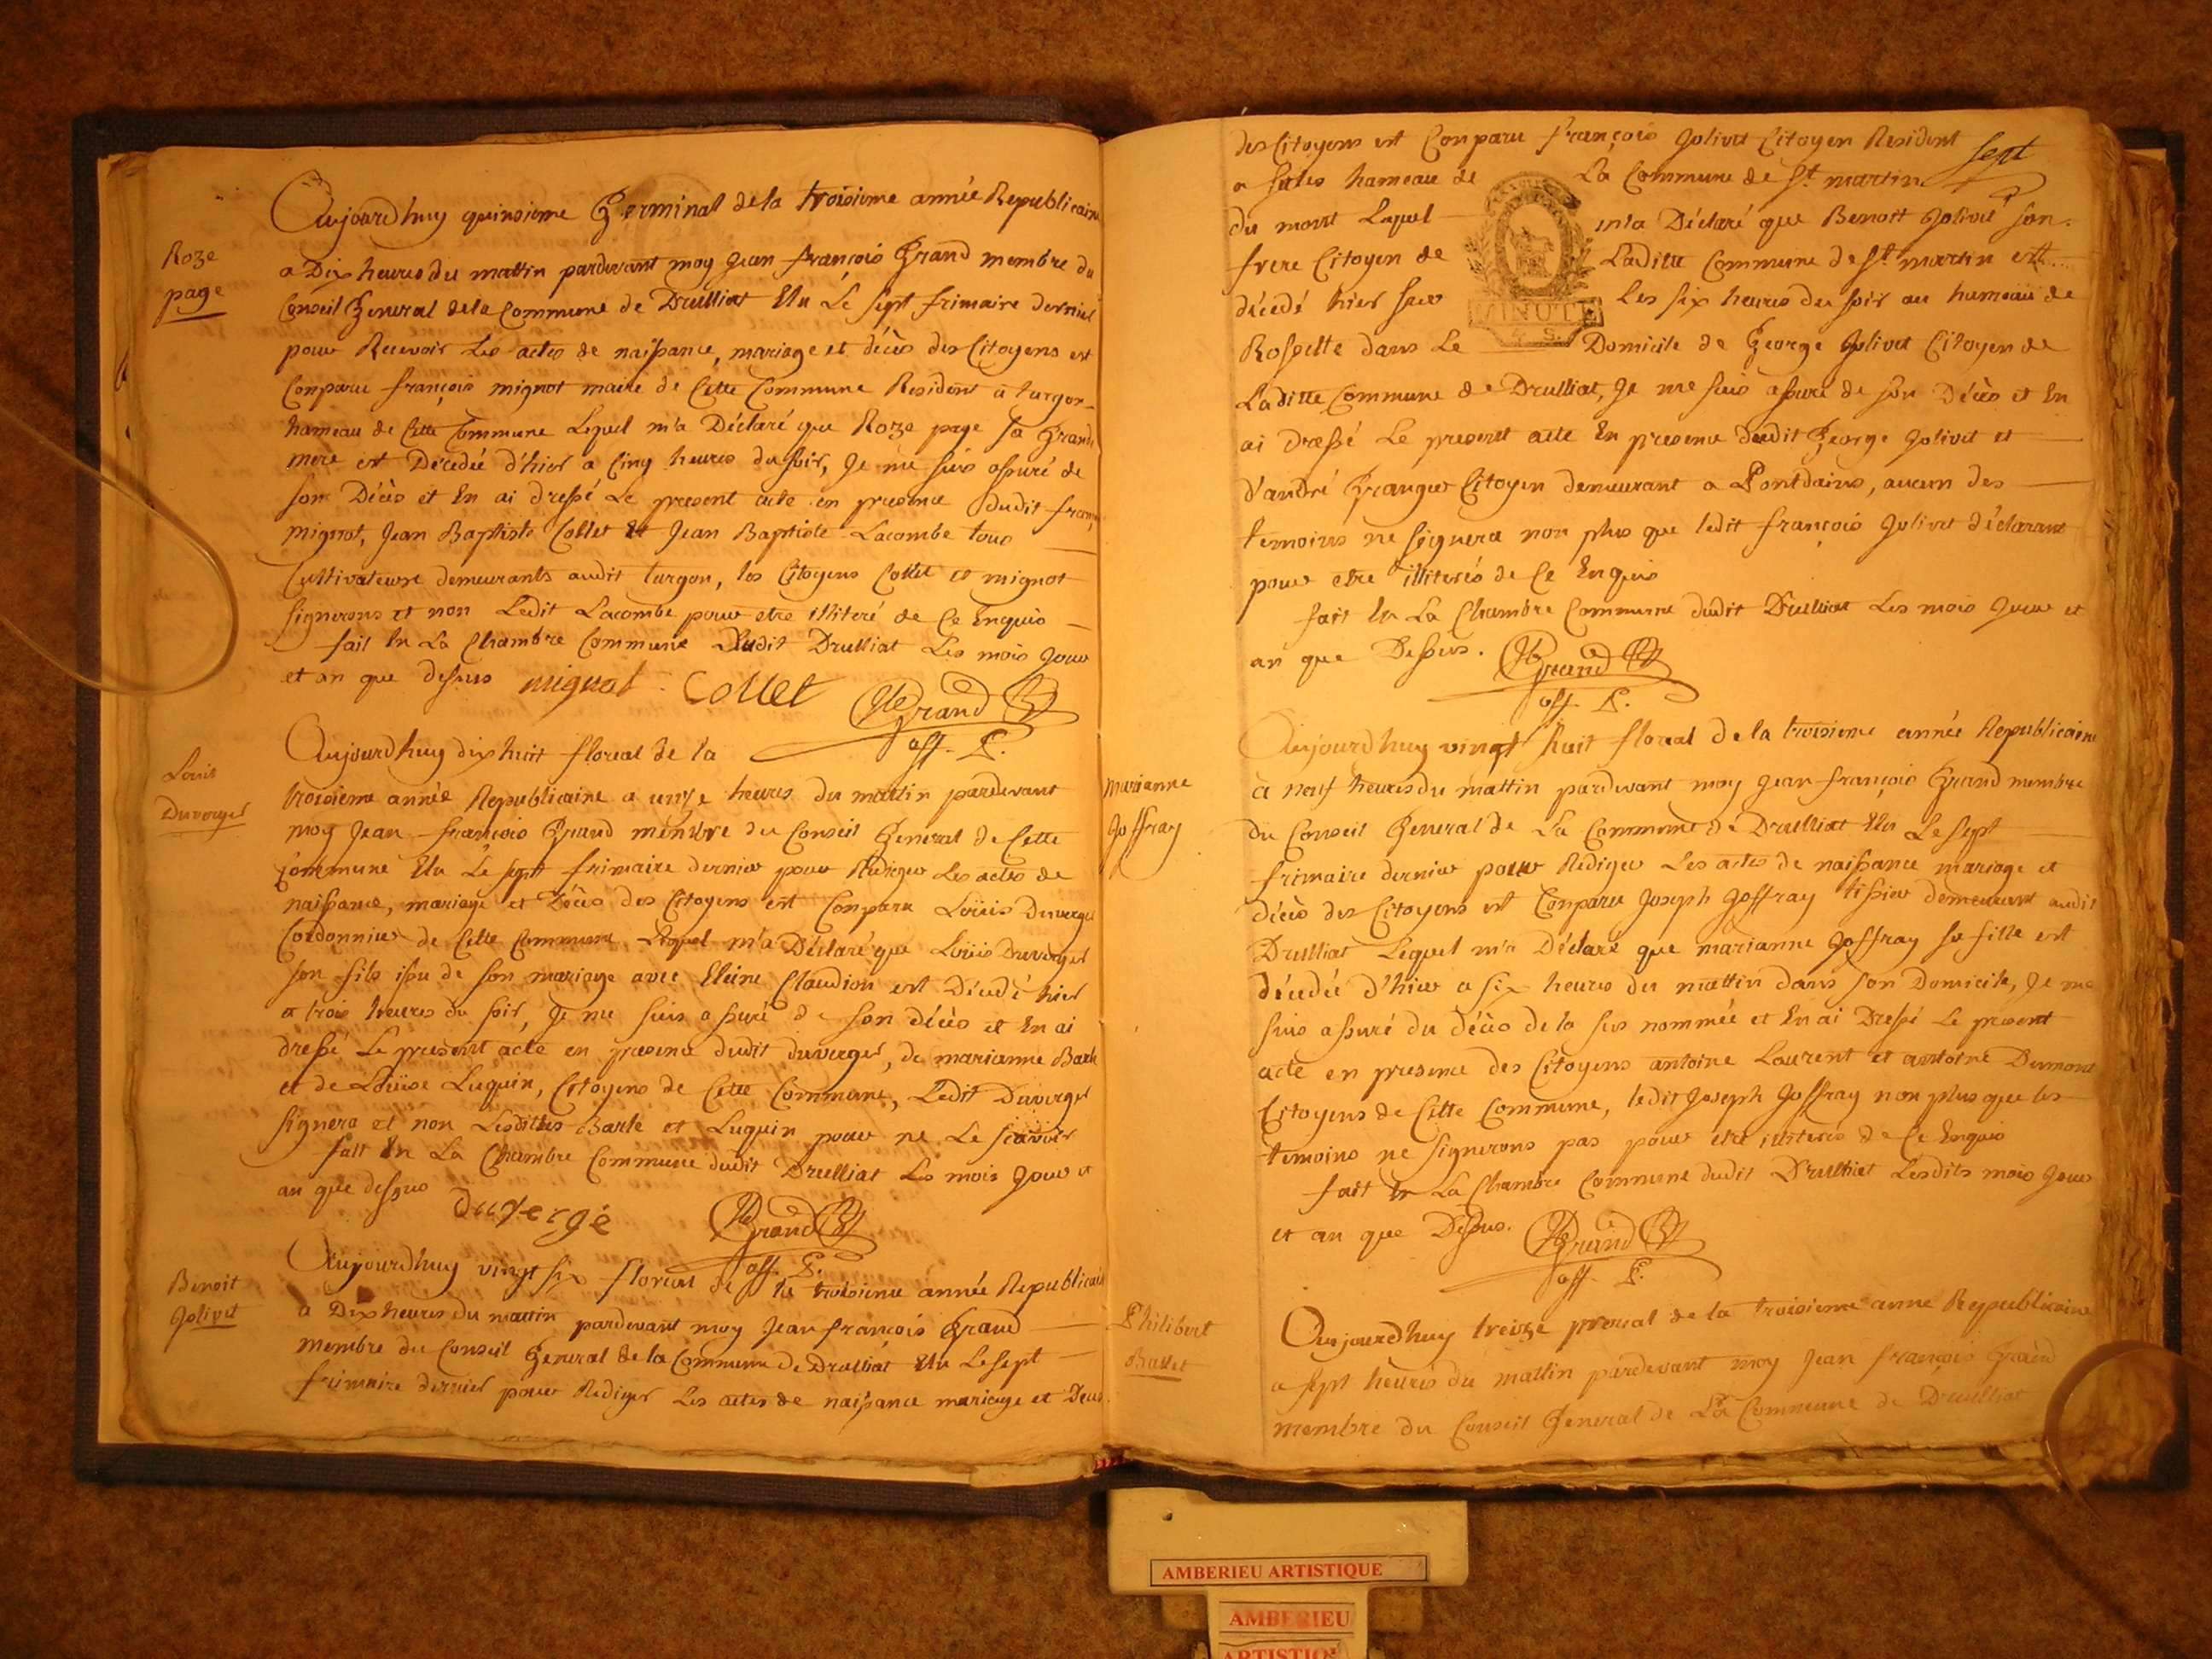 Roze
page
Aujourdhuy quinsieme Germinal de la troisieme année Republicaine
a Dix heures du mattin pardevant moy Jean françois Grand membre du
Conseil General de la Commune de Drulliat Elu Le sept frimaire dernier
pour Recevoir Les actes de naissance, mariage et décès des Citoyens est
Conparu françois mignot maire de Cette Commune Resident a turgon
hameau de Cette Commune Lequel m'a Déclaré que Roze page sa Grand
mere est Decedée d'hier a Cinq heures du soir, Je me suis assuré de
son Décès et En ai dressé Le present acte en presence dudit
mignot, Jean Baptiste Collet et Jean Baptiste Lacombe tous
Cultivateurs demeurants audit turgon, les Citoyens Collet et mignot
signerons et non Ledit Lacombe pour etre illiteré de Ce Enquis
fait En La Chambre Commune dudit Drulliat Les mois Jour
et an que dessus mignot Collet Grand
off. P.
Louis
Duverger
Aujourdhuy dix huit floreal de la
troisieme année Republicaine a unze heures du mattin pardevant
moy Jean françois Grand membre du Conseil General de Cette
Commune Elu Le sept frimaire dernier pour Rediger Les actes de
naissance, mariage et Décès des Citoyens est Conparu Louis Duverger
Cordonnier de Cette Commune Lequel m'a Déclaré que Louis Duverger
son fils issu de son mariage avec Claudion est Décedé hier
a trois heures du soir, Je me suis assuré de son décès et En ai
dressé Le present acte en presence dudit duverger, de marianne Barle
et de Loüise Luquin, Citoyens de Cette Commune, Ledit Duverger
signera et non Lesdittes Barle et Luquin pour ne Le scavoir
fait En La Chambre Commune dudit Drulliat Les mois Jour et
an que dessus duvergé Grand
off. P.
Benoit
Jolivet
Aujourdhuy vingt six floreal de la troisieme année Republicaine
a Dix heures du mattin pardevant moy Jean françois Grand
membre du Conseil General de la Commune de Drulliat Elu Le sept
frimaire dernier pour Rediger Les actes de naissance mariage et Deces
sept
des Citoyens est Conparu françois Jolivet Citoyen Resident
a hameau de La Commune de St. martin
du mont Lequel m'a Déclaré que Benoit Jolivet son
frere Citoyen de Laditte Commune de St. martin est
décedé hier sur Les six heures du soir au hameau de
Rossette dans Le Domicile de George Jolivet Citoyen de
MINUTE
4 S.
Laditte Commune de Drulliat, Je me suis assuré de son Décès et En
ai Dressé Le present acte En presence dudit George Jolivet et
d'andré Granger Citoyen demeurant a Pontdains, aucun des
temoins ne signera non plus que ledit françois Jolivet déclarant
pour etre illiterés de Ce Enquis
fait En La Chambre Commune dudit Drulliat Les mois Jour et
an que Dessus. Grand
off. P.
marianne
Joffray
Aujourdhuy vingt huit floreal de la troisieme année Republicaine
à neuf heures du mattin pardevant moy Jean françois Grand membre
du Conseil General de La Commune de Drulliat Elu Le sept
frimaire dernier pour Rediger Les actes de naissance mariage et
décès des Citoyens est Conparu Joseph Joffray tissier demeurant audit
Drulliat Lequel m'a Déclaré que marianne Joffray sa fille est
décedée d'hier a six heures du mattin dans son Domicile, Je me
suis assuré du décès de la sus nommée et En ai Dressé Le present
acte en presence des Citoyens antoine Laurent et antoine Dumont
Citoyens de Cette Commune, ledit Joseph Joffray non plus que les
temoins ne signerons pas pour etre illiterés de Ce Enquis
fait En La Chambre Commune dudit Drulliat Lesdits mois Jour
et an que Dessus. Grand
off. P.
Philibert
Ballet
Aujourdhuy treize prerial de la troisieme anne Republicaine
a sept heures du mattin pardevant moy Jean françois Grand
membre du Conseil General de La Commune de Drulliat
AMBERIEU ARTISTIQUE
AMBERIEU
ARTISTIQUE